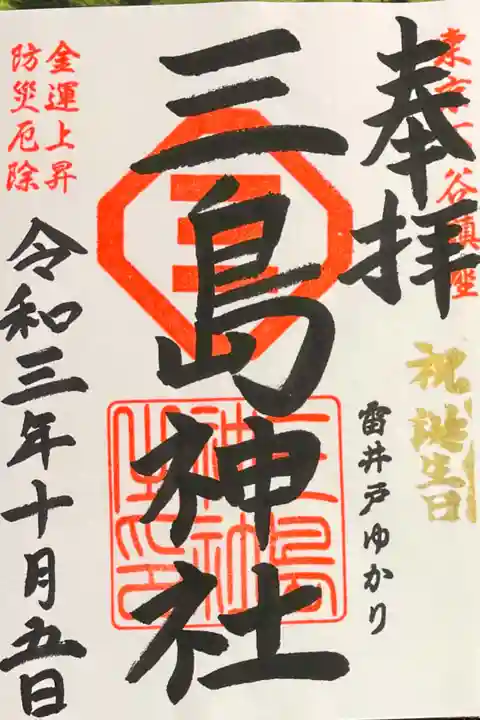 東京下谷鎮座
奉拝
祝誕生日
雷井戸ゆかり
三島神社
金運上昇
防災厄除
令和三年十月五日